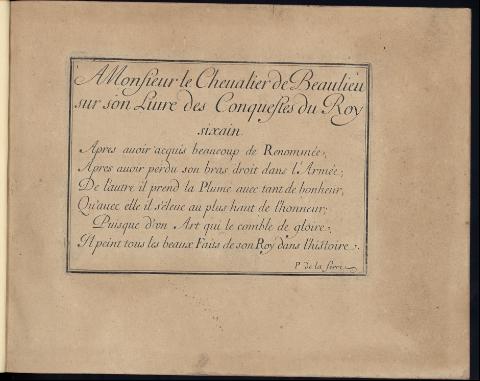 A Monsieur le Cheualier de Beaulieu
sur son Liure des Conquestes du Roy
sixain
Apres auoir acquis beaucoup de Renommée,
Apres auoir perdu son bras droit dans l'Armée;
De l'autre il prend la Plume auec tant de bonheur,
Qu'auec elle il s'éleue au plus haut de l'honneur;
Puisque d'vn Art qui le comble de gloire,
Il peint tous les beaux Faits de son Roy dans l'histoire.
P de la serre